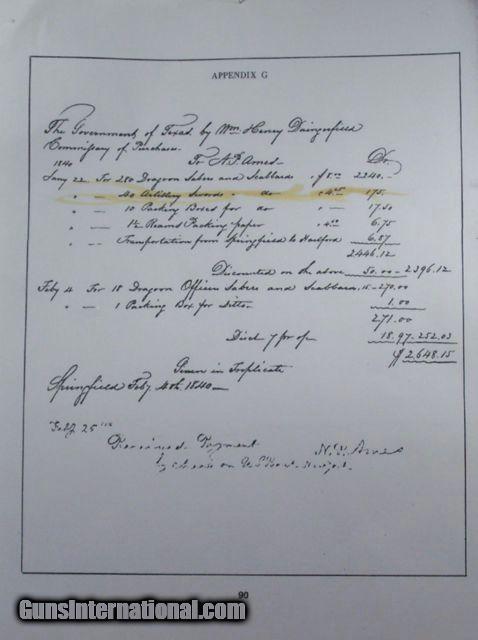 APPENDIX G
The Government of Texas by Wm Henry Daingerfield
Commissary of Purchase.
1840 To N. P. Ames Dr.
Jany 22 For 280 Dragoon Sabers and Scabbards $8.00 2240.-
" — 40 Artillery Swords " do " 175.
" — 10 Packing Boxes for do " — 17.50
" — 1½ Reams Packing paper " 4.50 6.75
" — Transportation from Springfield to Hartford 6.87
2446.12
Discounted on the above 50.00 - 2396.12
Feby 4 For 18 Dragoon Officers Sabers and Scabbards 15 - 270.00
" — 1 Packing Box for Ditto 1.00
271.00
7 pr 18.97 - 252.03
$2648.15
Given in Triplicate
Springfield Feby 4th 1840 —
Feby 25th
Received Payment N. P. Ames
by check on
90
GunsInternational.com